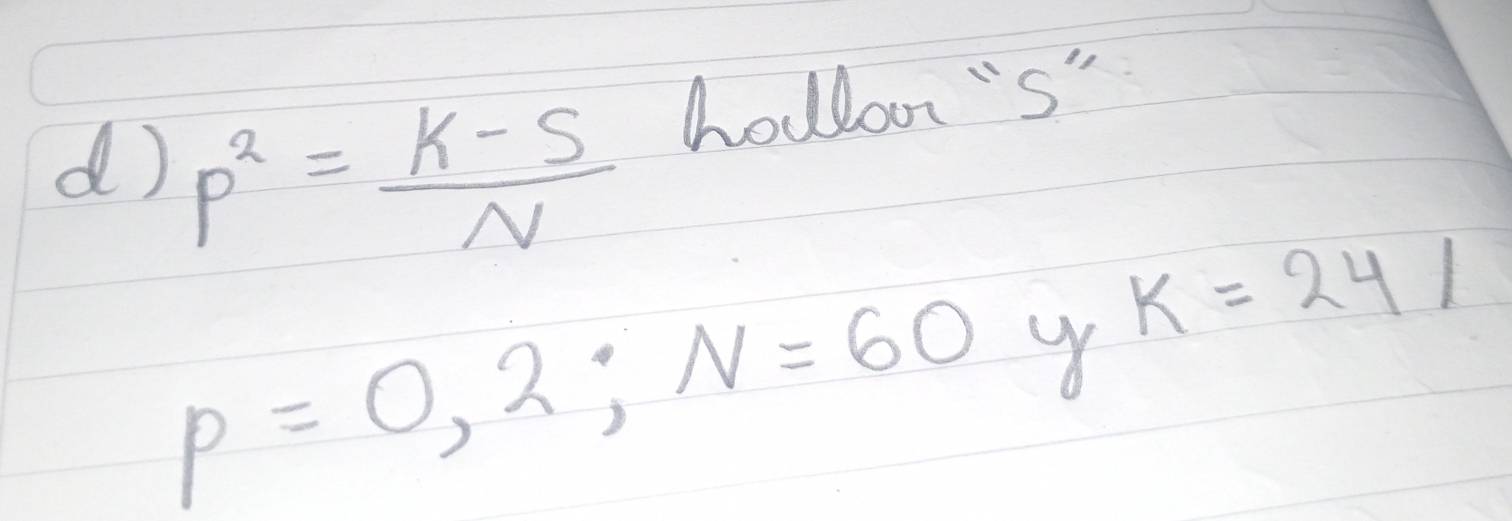 d) p² = (K - S)/N hallar "S"
p = 0,2 ; N = 60 y K = 24 /